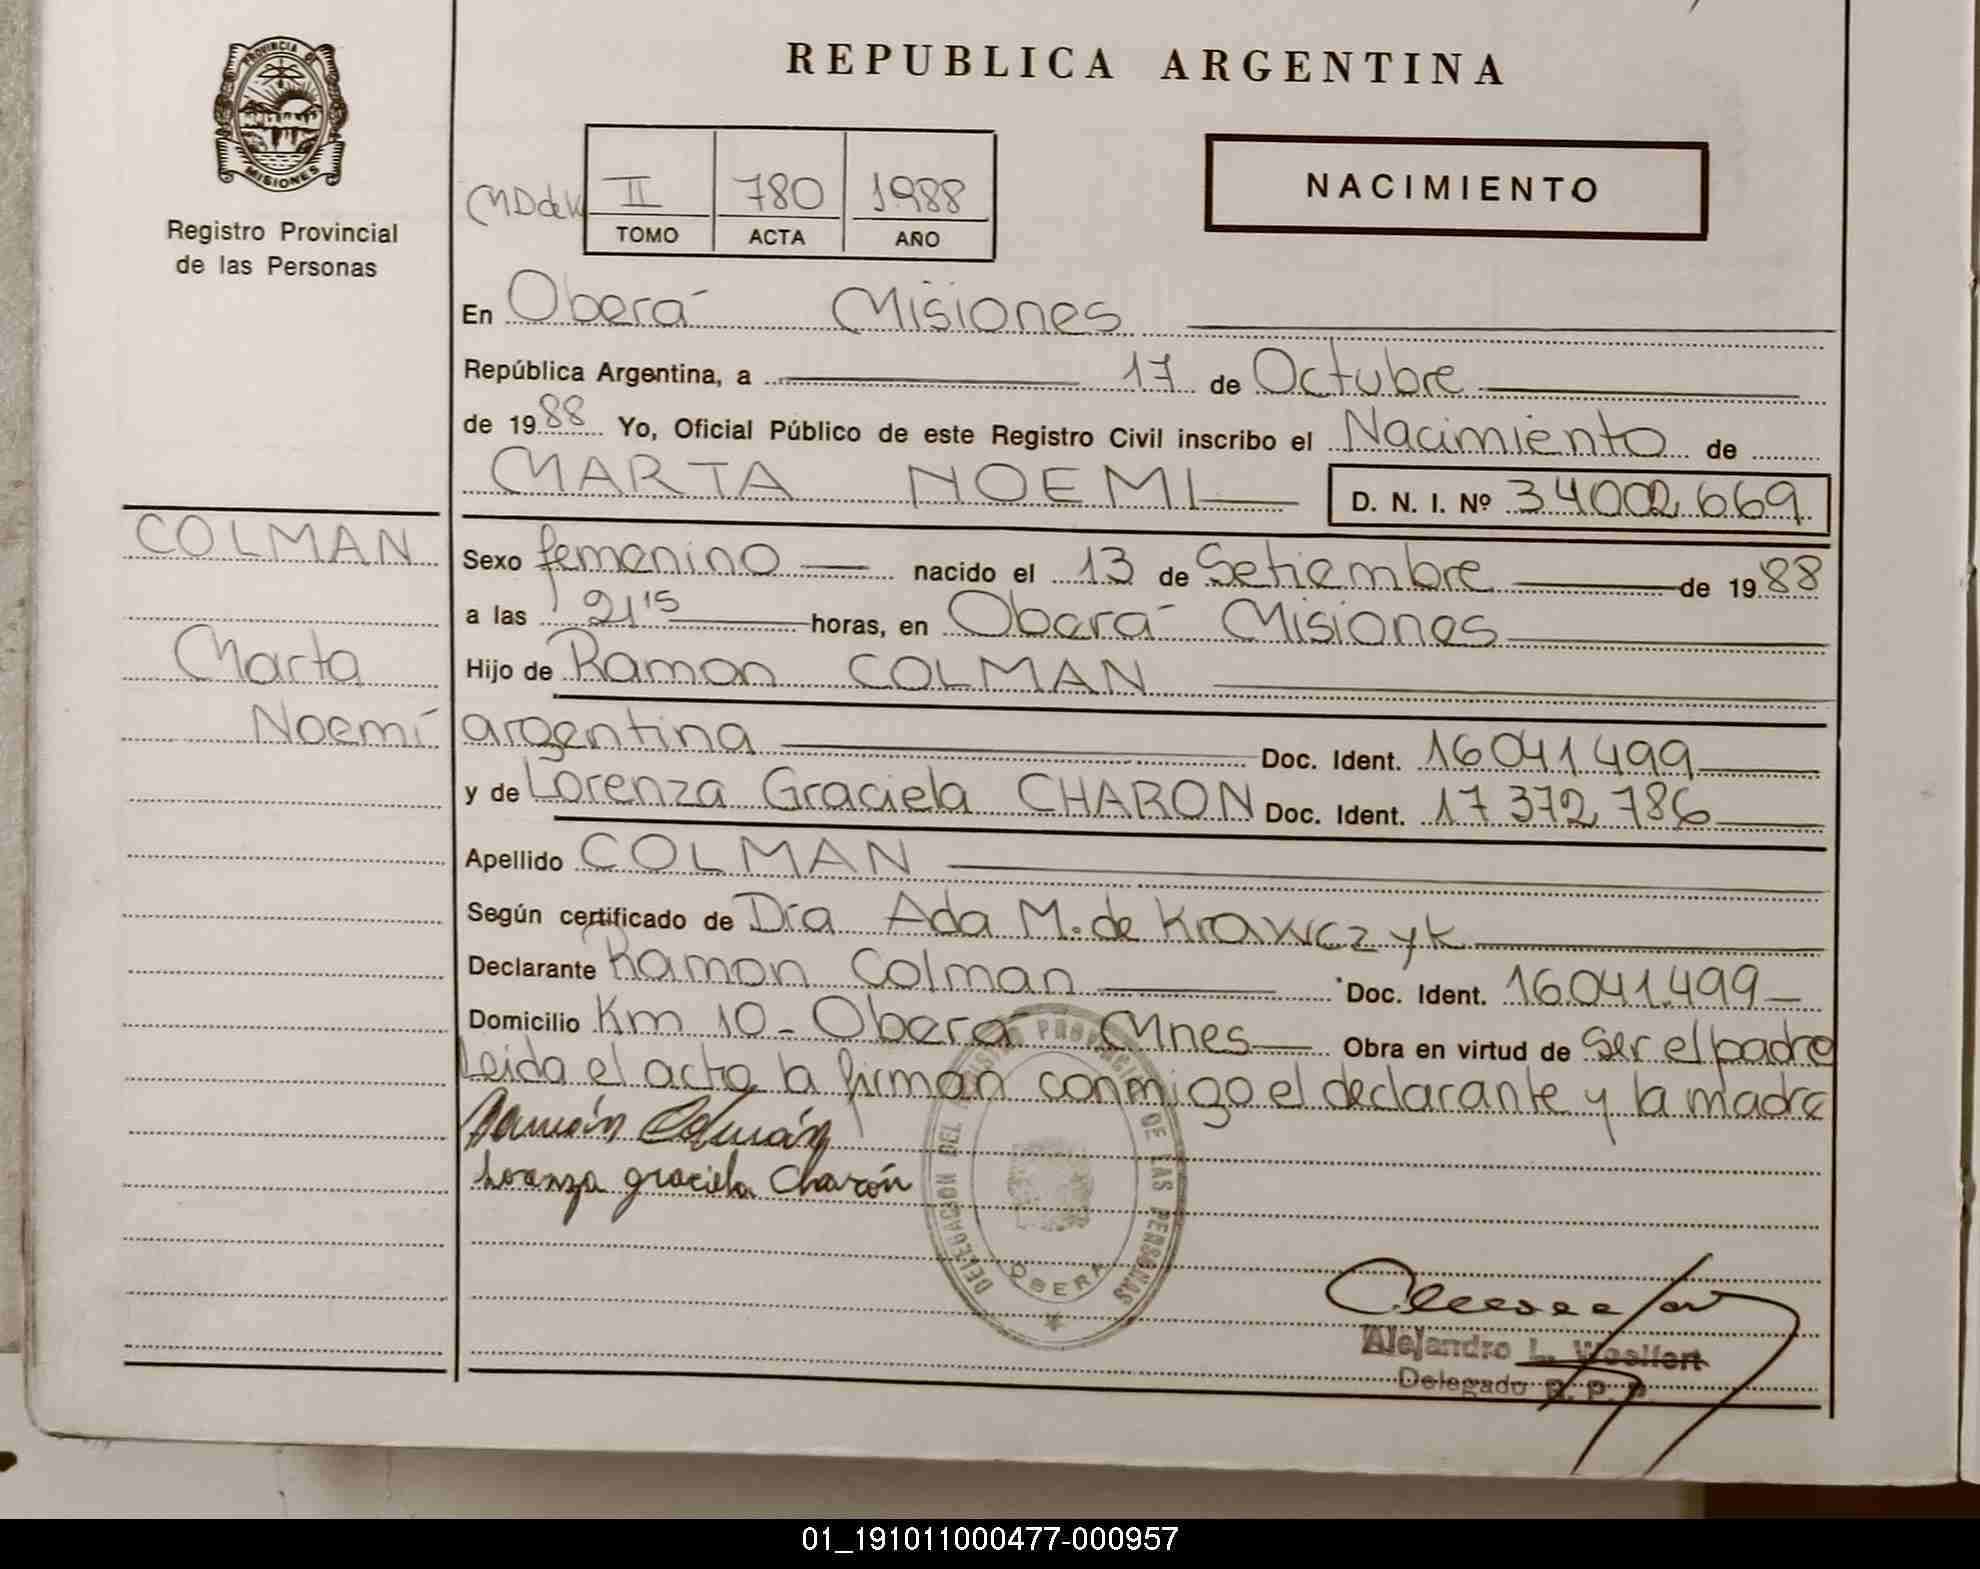 REPUBLICA ARGENTINA
PROVINCIA DE
MISIONES
Registro Provincial
de las Personas
NACIMIENTO
MDdeK II 780 1988
TOMO ACTA AÑO
En Oberá Misiones
República Argentina, a 17 de Octubre
de 1988 Yo, Oficial Público de este Registro Civil inscribo el Nacimiento de
MARTA NOEMI D. N. I. Nº 34002.669
COLMAN
Marta
Noemí
Sexo femenino nacido el 13 de Setiembre de 1988
a las 21'15 horas, en Oberá Misiones
Hijo de Ramon COLMAN
argentina Doc. Ident. 16041499
y de Lorenza Graciela CHARON Doc. Ident. 17 372 786
Apellido COLMAN
Según certificado de Dra Ada M. de Krawczyk
Declarante Ramon Colman Doc. Ident. 16.041.499
Domicilio Km 10 - Oberá Mnes Obra en virtud de ser el padre
Leida el acta la firman conmigo el declarante y la madre
Ramón Colmán
Loranza graciela Charón
DELEGACION DEL REGISTRO PROVINCIAL DE LAS PERSONAS
OBERA
Alejandro L. Woelfert
Delegado R. P. P.
01_191011000477-000957